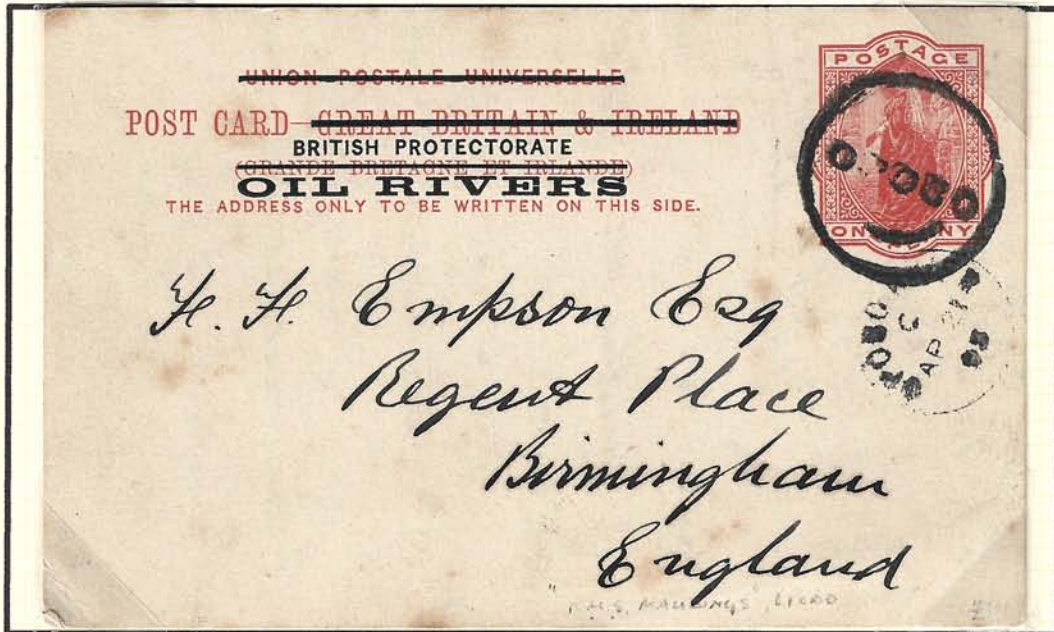 UNION POSTALE UNIVERSELLE
POST CARD GREAT BRITAIN & IRELAND
BRITISH PROTECTORATE
(GRANDE BRETAGNE ET IRLANDE)
OIL RIVERS
THE ADDRESS ONLY TO BE WRITTEN ON THIS SIDE.
POSTAGE
OPOBO
ONE PENNY
OPOBO
C
AP 21
93
H. H. Empson Esq
Regent Place
Birmingham
England